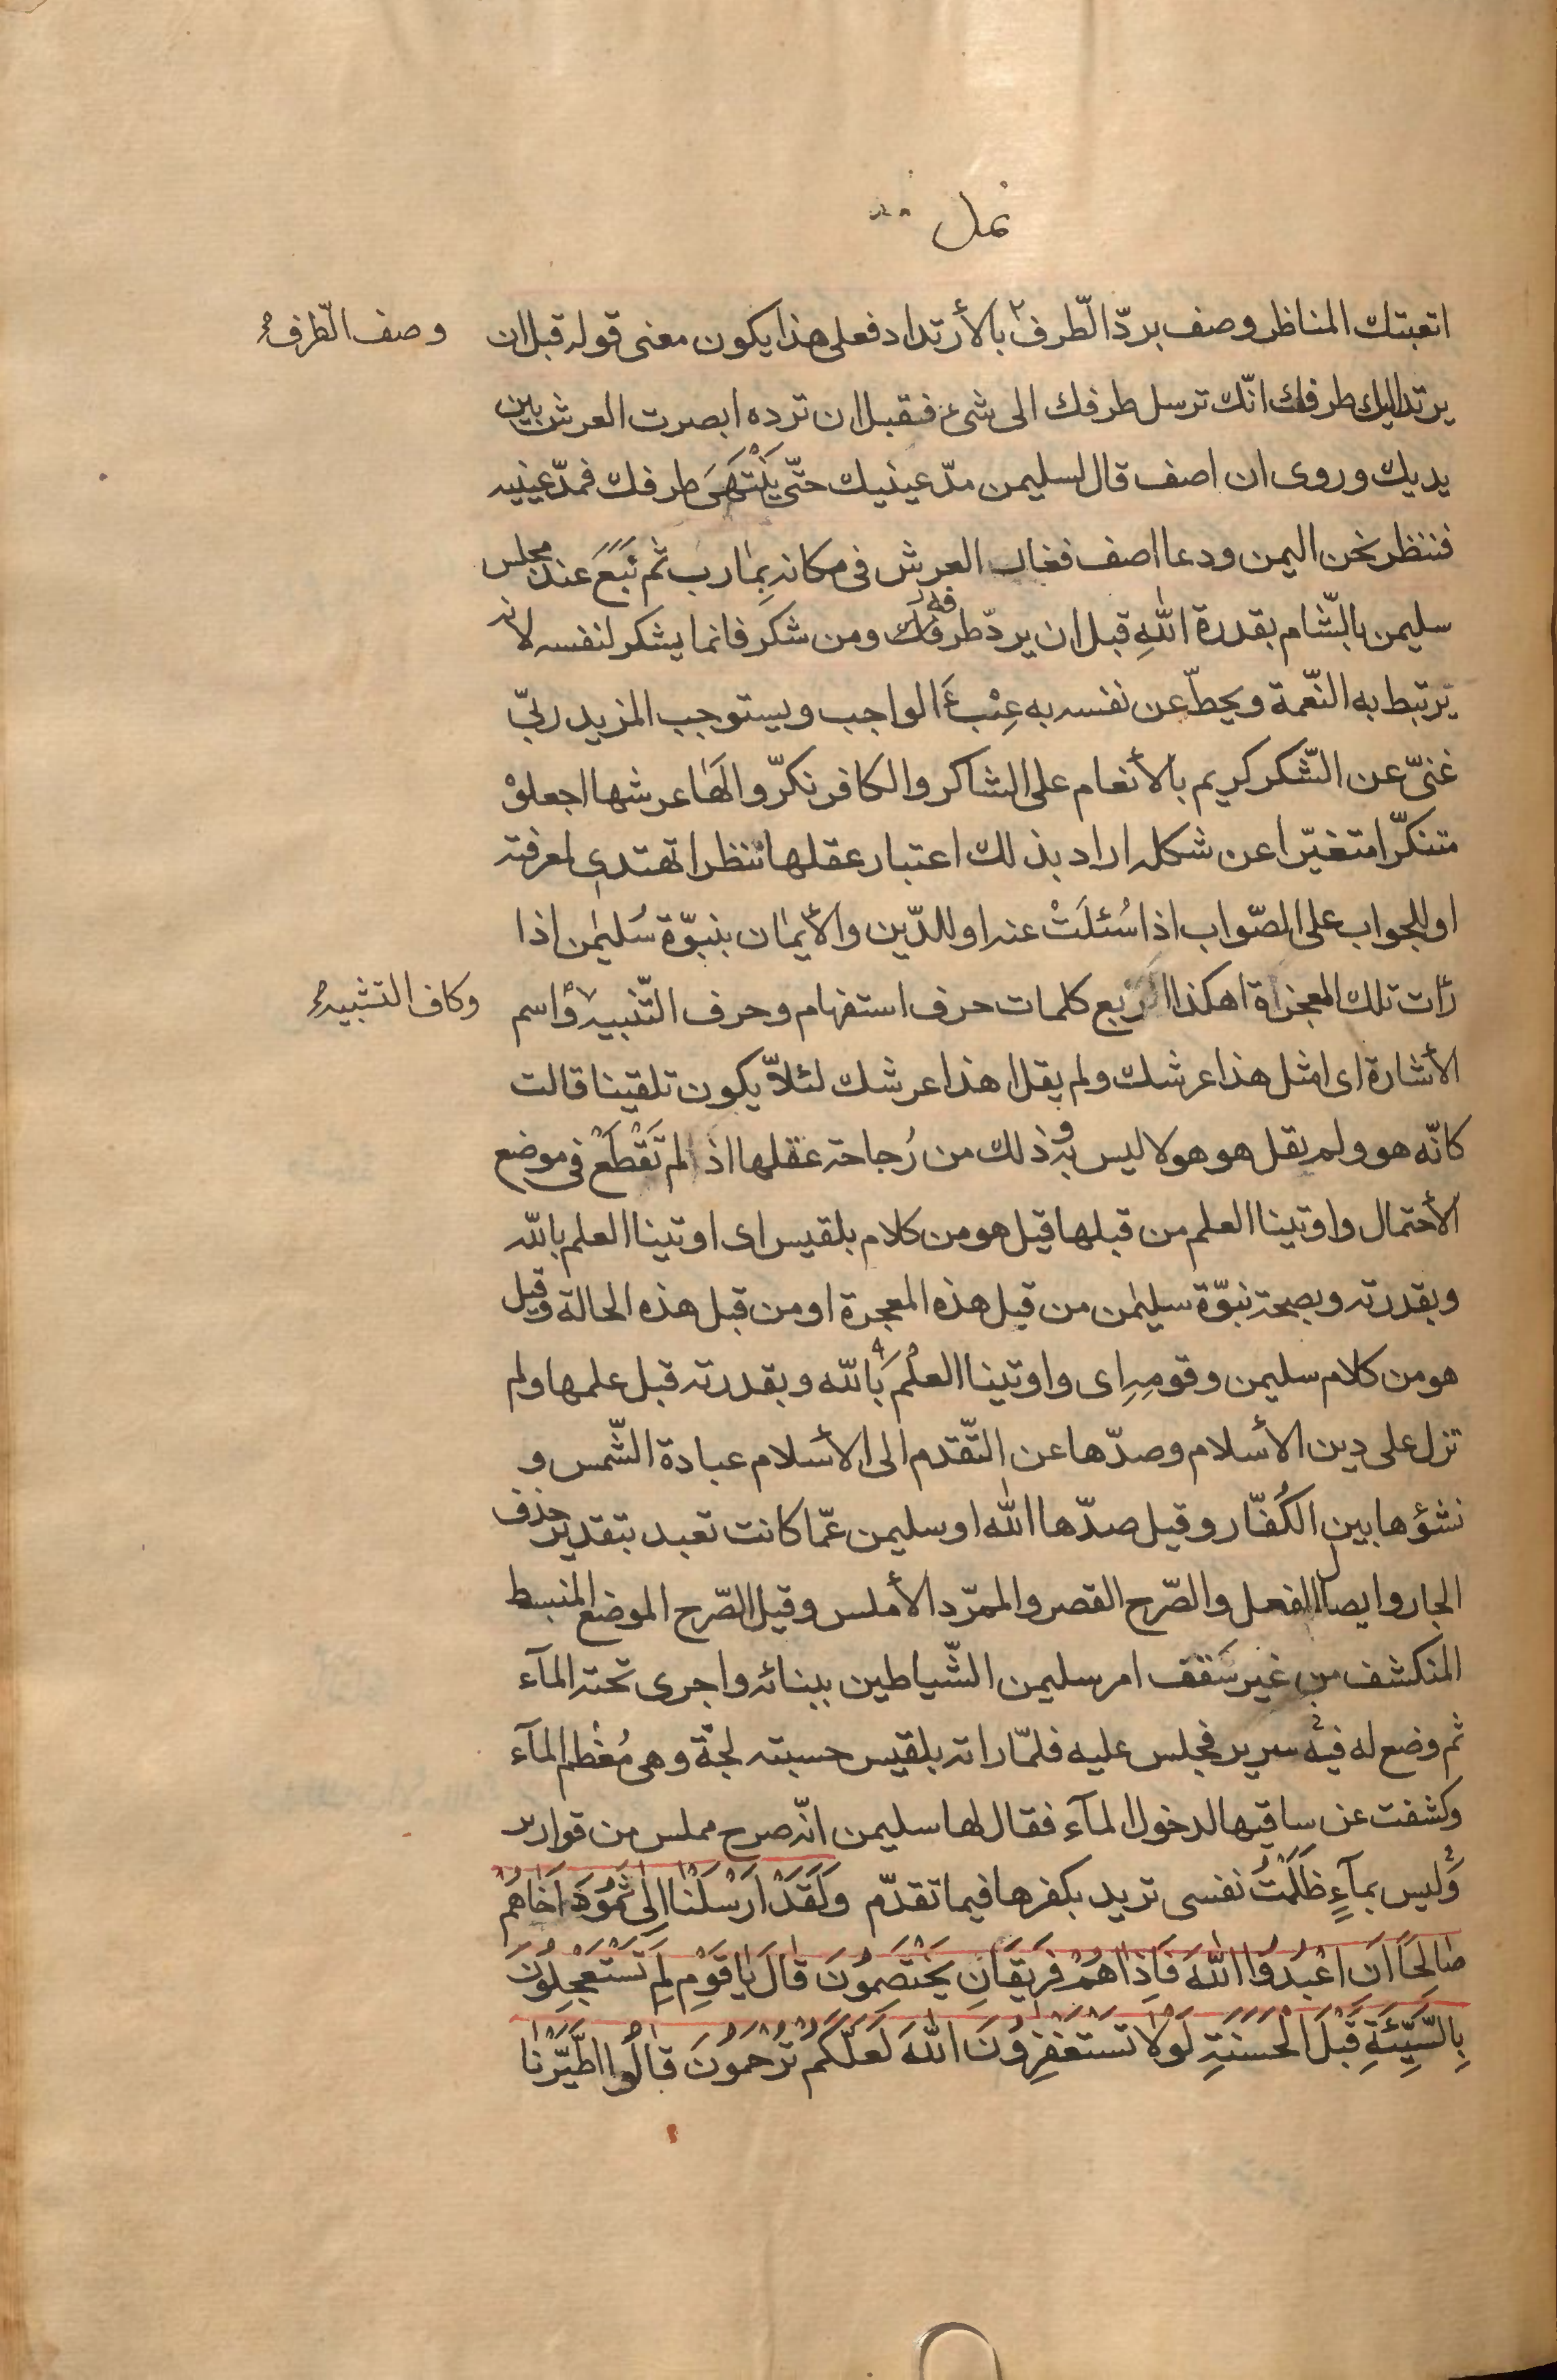 نمل
اتعبتك المناظر وصف بردّ الطّرف بالأرتداد فعلى هذا يكون معنى قوله قبل ان
وصف الطّرف
يرتد اليك طرفك انّك ترسل طرفك الى شىء فقبل ان ترده ابصرت العرش بين
يديك وروى ان اصف قال لسليمن مدّ عينيك حتّى يَنْتَهىَ طرفك فمدّ عينيه
فنظر نحن اليمن ودعا اصف فغاب العرش فى مكانه بِمارب ثم نَبَعَ عند مجلس
سليمن بالشّام بقدرة اللّٰهِ قبل ان يردّ طرفك ومن شكر فانما يشكر لنفسه لانه
يرتبط به النّعمة ويحطّ عن نفسه به عِبْءَ الواجب ويستوجب المزيد ربّى
غنىّ عن الشّكر كريم بالأنعام على الشاكر والكافر نكّروا لها عرشها اجعلوْ
متنكّرا متغيّرا عن شكله اراد بذلك اعتبار عقلها ننظر اتهتدى لمعرفته
او للجواب على الصّواب اذا سُئلَتْ عنه او للدّين والأيمان بنبوّة سُليمٰن اذا
رأت تلك المعجزة اهكذا اربع كلمات حرف استفهام وحرف التّنبيه واسم
وكاف التشبيه
الأشارة اى امثل هذا عرشك ولم يقل اهذا عرشك لئلاّ يكون تلقينا قالت
كانّه هو ولم يقل هو هو لا ليس به وذلك من رُجاحة عقلها اذ لم تَقْطَعْ فى موضع
الأحتمال واوتينا العلم من قبلها قيل هو من كلام بلقيس اى اوتينا العلم باللّه
وبقدرته وبصحة نبوّة سليمٰن من قبل هذه المعجزة او من قبل هذه الحالة وقيل
هو من كلام سليمن وقومِهِ اى واوتينا العلم باللّه وبقدرته قبل علمها ولم
نزل على دين الأسلام وصدّها عن التّقدم الى الأسلام عبادة الشّمس و
نشؤها بين الكُفّار وقيل صدّها اللّٰه او سليمن عمّا كانت تعبد بتقدير حذف
الجار وايصال الفعل والصّرح القصر والممرّد الأملس وقيل الصّرح الموضع المنبسط
المنكشف من غير سَقف امر سليمن الشّياطين ببنائه واجرى تحته المآء
ثم وضع له فيه سرير فجلس عليه فلمّا راته بلقيس حسبته لجّة وهى مُعْظم المآء
وكشفت عن ساقيها لدخول المآء فقال لها سليمن انّه صرح مملس من قوارير
وَليس بمآءٍ ظَلَمْتُ نفسى تريد بكفرها فيما تقدّم وَلَقَدْ اَرْسَلْنٰا اِلىٰ ثَمُودَ اَخٰاهُمْ
صٰالِحًا اَنِ اعْبُدُوا اللّٰهَ فَاِذٰا هُمْ فَرِيقَانِ يَخْتَصِمُونَ قٰالَ يٰا قَوْمِ لِمَ تَسْتَعْجِلُونَ
بِالسَّيِّئَةِ قَبْلَ الْحَسَنَةِ لَوْلاٰ تَسْتَغْفِرُونَ اللّٰهَ لَعَلَّكُمْ تُرْحَمُونَ قٰالُوا اطَّيَّرْنٰا